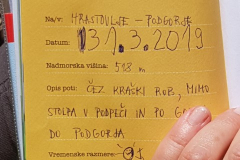 Na/v: HRASTOVLJE - PODGORJE
Datum: 31.3.2019
Nadmorska višina: 508 m
Opis poti: ČEZ KRAŠKI ROB, MIMO
STOLPA V PODPEČI IN PO
DO PODGORJA
Vremenske razmere: